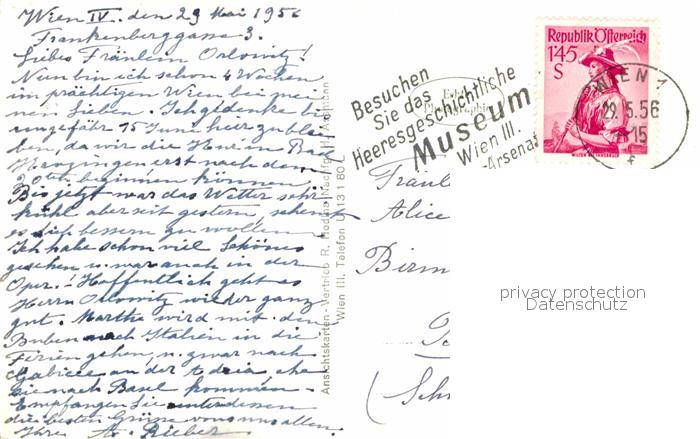 Wien IV. den 29 Mai 1956
Frankenberggasse 3.
Liebes Fräulein Orlowitz!
Nun bin ich schon 4 Wochen
im prächtigen Wien bei mei-
nen Lieben. Ich gedenke bis
ungefähr 15 Juni hier zu blei-
ben, da wir die Kur in Bad
erst nach dem
20ten beginnen können.
Bis jetzt war das Wetter sehr
kühl aber seit gestern, scheint
es sich bessern zu wollen.
Ich habe schon viel Schönes
gesehen u. war auch in der
Oper! Hoffentlich geht es
Herrn Orlowitz wieder ganz
gut. Marthe wird mit den
Buben nach Italien in die
Ferien gehen, u. zwar nach
Gabicce an der Adria, ehe
sie nach Basel kommen.
Empfangen Sie unterdessen
die besten Grüsse von uns allen.
Ihre A. Rieber
Ansichtskarten-Vertrieb R.
Wien III. Telefon U 131 80
Besuchen
Sie das
Heeresgeschichtliche
Museum
Wien III.
-Arsenal
Republik Österreich
1'45
S
WIEN 1
29.5.56
15
f
Fräul
Alice
Birm
(Sch
privacy protection
Datenschutz